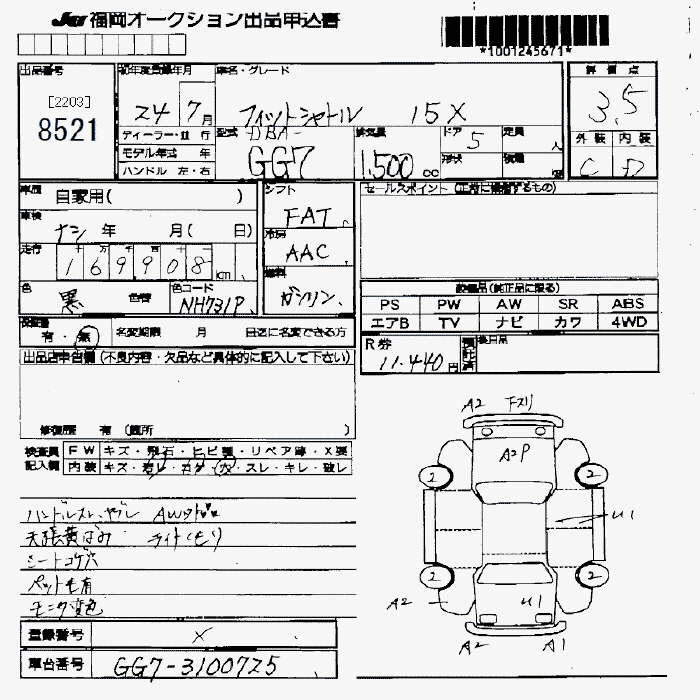 JU 福岡オークション出品申込書
*1001245671*
出品番号
[2203]
8521
初年度登録年月
24 7月
車名・グレード
フィットシャトル 15X
評価点
3.5
外装 内装
C D
ディーラー・並行
モデル年式 年
ハンドル 左・右
型式
DBA-
GG7
排気量
1.500 cc
ドア
5
形状
定員
人
積載
kg
車歴
自家用( )
車検
ナシ 年 月( 日)
走行
十 万 千 百 十 一
169908 km
色
黒
色替
色コード
NH731P
シフト
FAT
冷房
AAC
燃料
ガソリン
セールスポイント(正確に記入するもの)
装備品(純正品に限る)
PS PW AW SR ABS
エアB TV ナビ カワ 4WD
保証書
有・無
名変期限 月 日迄に名変できる方
R券
11.440円
預託済
後日品
出品店申告欄(不良内容・欠品など具体的に記入して下さい)
修復歴 有(箇所 )
検査員
記入欄
FW キズ・飛石・ヒビ割・リペア跡・X要
内装 キズ・汚レ・コゲ・穴・スレ・キレ・破レ
ハンドルスレ、ヤブレ AWサビ
天張黄ばみ ライトくもり
シートコゲ穴
ペット毛有
モニタ変色
登録番号
×
車台番号
GG7-3100725
A2 下スリ
A2P
2 2
U1
2 2
A2
U1
A2 A1